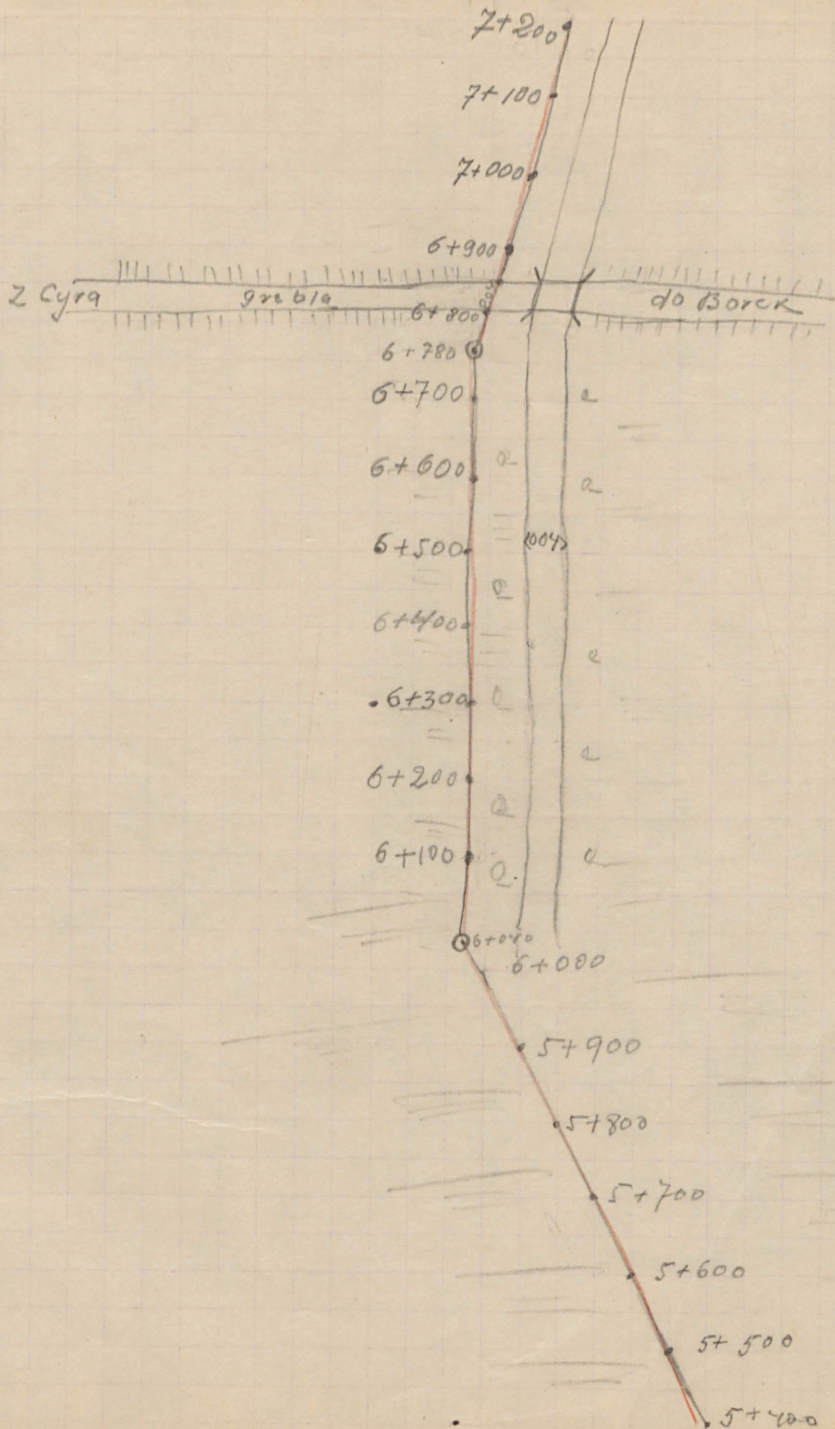 7+200
7+100
7+000
6+900
Z Cyra grebla do Borek
6+800
6+780
6+700
6+600
6+500
6+400
6+300
6+200
6+100
6+040
6+000
5+900
5+800
5+700
5+600
5+500
5+400